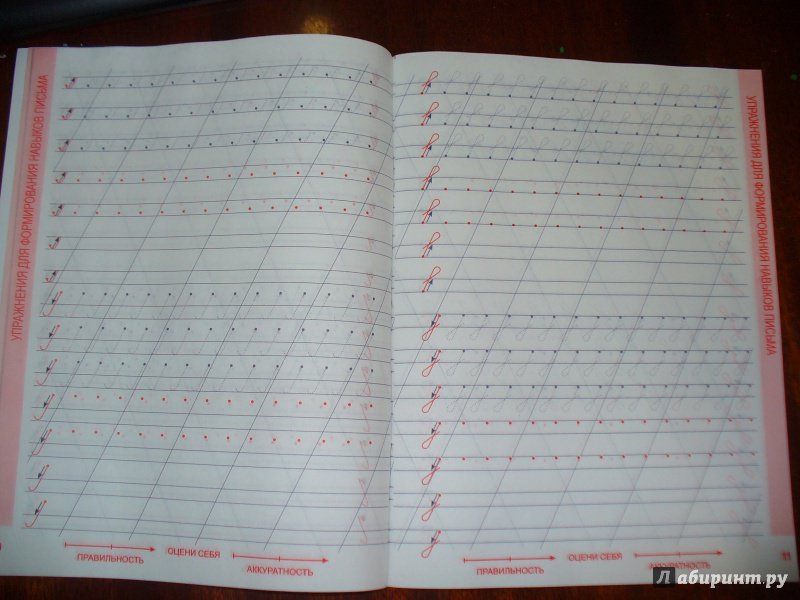 УПРАЖНЕНИЯ ДЛЯ ФОРМИРОВАНИЯ НАВЫКОВ ПИСЬМА
ПРАВИЛЬНОСТЬ
ОЦЕНИ СЕБЯ
АККУРАТНОСТЬ
УПРАЖНЕНИЯ ДЛЯ ФОРМИРОВАНИЯ НАВЫКОВ ПИСЬМА
ПРАВИЛЬНОСТЬ
ОЦЕНИ СЕБЯ
АККУРАТНОСТЬ
11
Лабиринт.ру